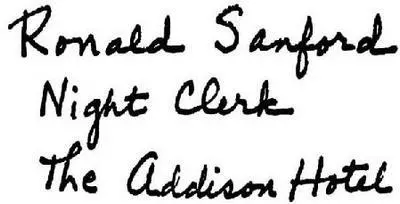 Ronald Sanford
Night Clerk
The Addison Hotel